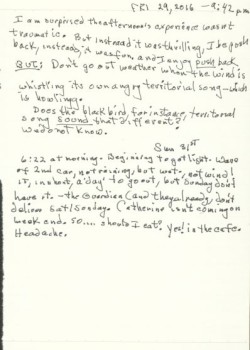 FRI 29, 2016 - 9:42 p.m.
I am surprised the afternoon's experience wasn't
traumatic. But instead it was thrilling, I be goofe
back, instead, it was fun, and I enjoy push back
BUT: Don't go out weather when the wind is
whistling its own angry territorial song - which
is howling.
Does the black bird for instance, territorial
song sound that different?
We do not know.
Sun 31st
6:22 at morning. Beginning to get light. Wave
of 2nd car, not raining, but wet - not wind!
IT, in short, a 'day' to go out, but Sunday don't
have it. - the Guardian (and they already, don't
deliver Sat/Sunday. Catherine isn't coming on
week end. So.... should I eat? Yes! in the cafe.
Headache.